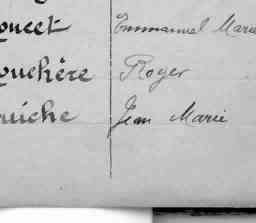 oucet Emmanuel Marie
ouchère Roger
uiche Jean Marie